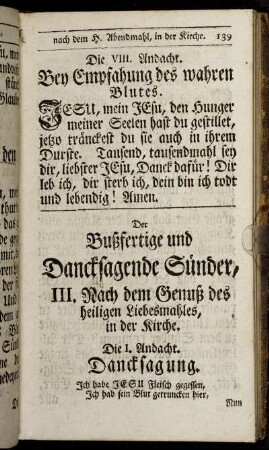 nach dem H. Abendmahl, in der Kirche. 139
Die VIII. Andacht.
Bey Empfahung des wahren
Blutes.
JESU, mein JEsu, den Hunger
meiner Seelen hast du gestillet,
jetzo tränckest du sie auch in ihrem
Durste. Tausend, tausendmahl sey
dir, liebster JEsu, Danck dafür! Dir
leb ich, dir sterb ich, dein bin ich todt
und lebendig! Amen.
Der
Bußfertige und
Dancksagende Sünder,
III. Nach dem Genuß des
heiligen Liebesmahles,
in der Kirche.
Die I. Andacht.
Dancksagung.
Ich habe JESU Fleisch gegessen,
Ich hab sein Blut getruncken hier,
Nun